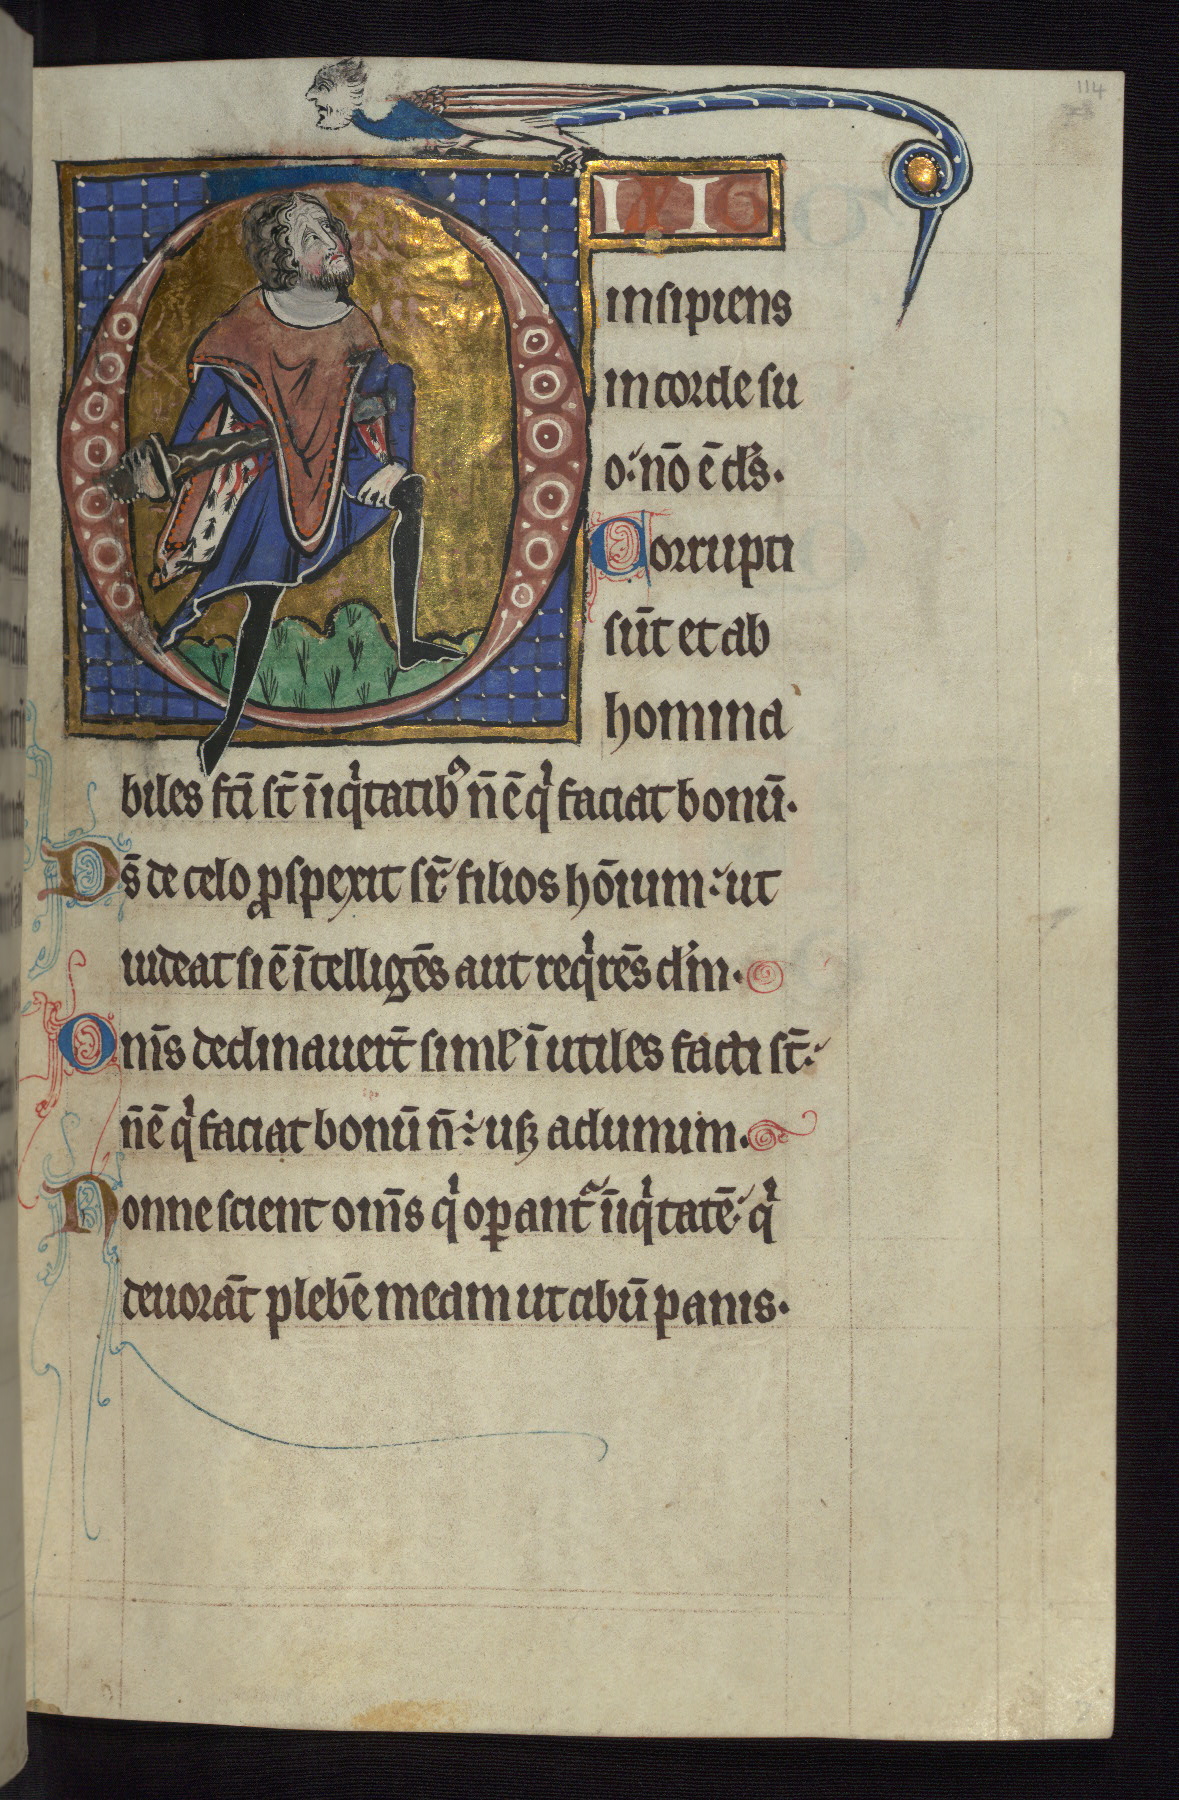 114
DIXIT
insipiens
in corde su
o: nō ē d̄s.
Corrupti
sūt et ab
homina
biles fc̄i st̄ īiqⁱtatibꝰ n̄ ē qⁱ faciat bonū.
Ds̄ de celo ꝓspexit sr̄ filios hōium: ut
uideat si ē ītelligēs aut reqⁱrēs dn̄m.
Om̄s declinauert̄ siml̕ īutiles facti st̄:
n̄ ē qⁱ faciat bonū n̄: usꝫ ad unum.
Nonne scient om̄s qⁱ oꝑant᷑ īiqⁱtatē: qⁱ
deuorāt plebē meam ut cibū panis.